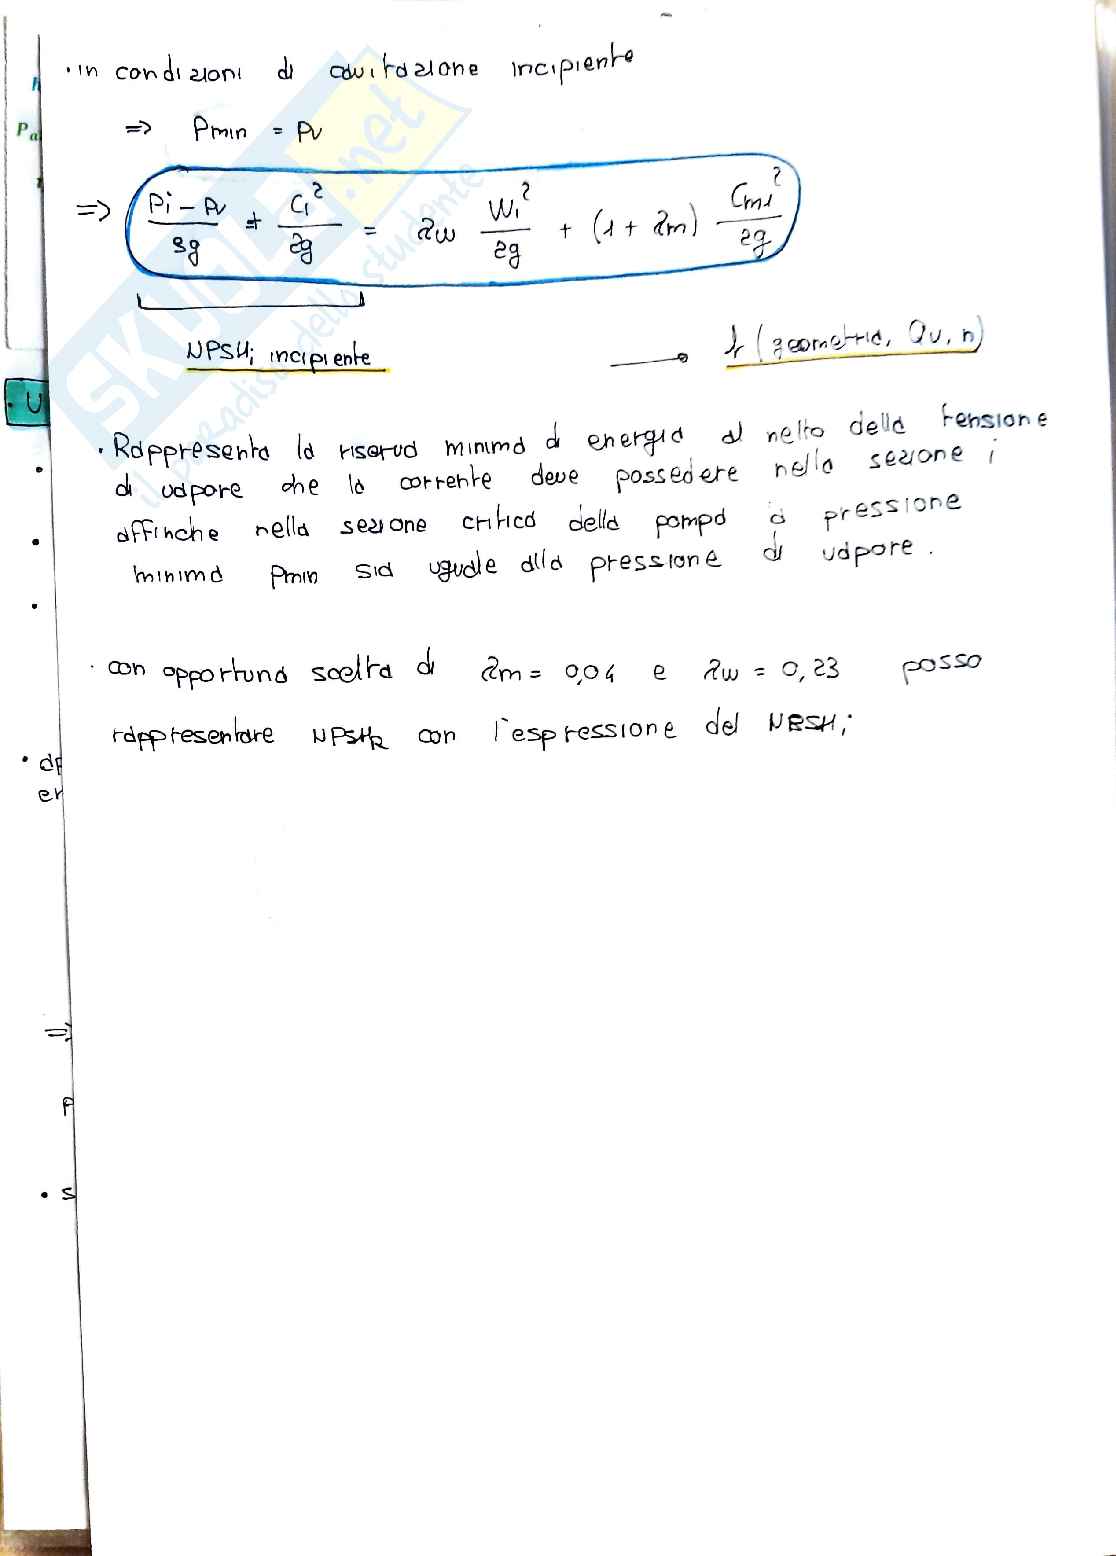 · in condizioni di cavitazione incipiente
=> Pmin = Pv
=> (Pi - Pv)/ρg + Ci²/2g = λw W1²/2g + (1 + λm) Cm1²/2g
NPSHi incipiente → f (geometria, Qv, n)
· Rappresenta la riserva minima di energia al netto della tensione
di vapore che la corrente deve possedere nella sezione i
affinche nella sezione critica della pompa a pressione
minima Pmin sia uguale alla pressione di vapore.
· con opportuna scelta di λm = 0,04 e λw = 0,23 posso
rappresentare NPSHR con l'espressione del NPSHi
SKUOLA.net
il paradiso dello studente
Pa
· U
· ap
er
=>
P
· S